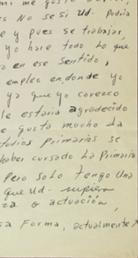 mi me gusto
s No se si Ud- Podria
e y pues se trabajar
yo hare todo Lo que
a en ese sentido,
empleo en donde yo
ya que yo carezco
le estaria agradecido
e gusta mucho La
tudios Primarios se
haber cursado La Primaria
Pero solo Tengo Una
que Ud- supiera
za o actuación,
sa Forma, actualmente